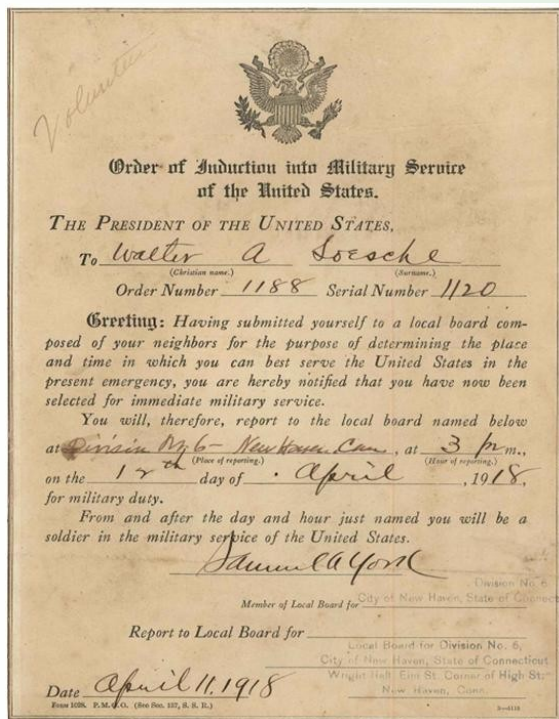 Volunteer
Order of Induction into Military Service
of the United States.
THE PRESIDENT OF THE UNITED STATES,
To Walter A Loesche
(Christian name.) (Surname.)
Order Number 1188 Serial Number 1120
Greeting: Having submitted yourself to a local board com-
posed of your neighbors for the purpose of determining the place
and time in which you can best serve the United States in the
present emergency, you are hereby notified that you have now been
selected for immediate military service.
You will, therefore, report to the local board named below
at Division No 6 - New Haven, Conn, at 3 p m.,
(Place of reporting.) (Hour of reporting.)
on the 12th day of April, 1918,
for military duty.
From and after the day and hour just named you will be a
soldier in the military service of the United States.
Samuel A York
Division No. 6
Member of Local Board for City of New Haven, State of Connect
Report to Local Board for
Local Board for Division No. 6,
City of New Haven, State of Connecticut
Wright Hall, Elm St. Corner of High St.
New Haven, Conn.
Date April 11, 1918
Form 1028. P. M. G. O. (See Sec. 157, S. S. R.)